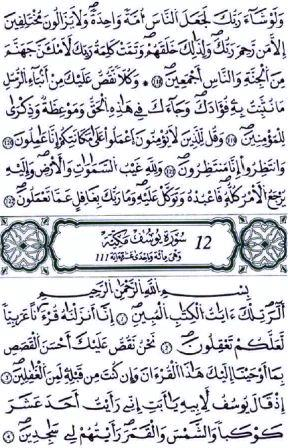 وَلَوْ شَآءَ رَبُّكَ لَجَعَلَ النَّاسَ أُمَّةً وَاحِدَةً وَلَا يَزَالُونَ مُخْتَلِفِينَ
إِلَّا مَن رَّحِمَ رَبُّكَ وَلِذَٰلِكَ خَلَقَهُمْ وَتَمَّتْ كَلِمَةُ رَبِّكَ لَأَمْلَأَنَّ جَهَنَّمَ
مِنَ الْجِنَّةِ وَالنَّاسِ أَجْمَعِينَ وَكُلًّا نَّقُصُّ عَلَيْكَ مِنْ أَنۢبَآءِ الرُّسُلِ
مَا نُثَبِّتُ بِهِ فُؤَادَكَ وَجَآءَكَ فِي هَٰذِهِ الْحَقُّ وَمَوْعِظَةٌ وَذِكْرَىٰ
لِلْمُؤْمِنِينَ وَقُل لِّلَّذِينَ لَا يُؤْمِنُونَ اعْمَلُوا عَلَىٰ مَكَانَتِكُمْ إِنَّا عَامِلُونَ
وَانتَظِرُوا إِنَّا مُنتَظِرُونَ وَلِلَّهِ غَيْبُ السَّمَٰوَٰتِ وَالْأَرْضِ وَإِلَيْهِ
يَرْجِعُ الْأَمْرُ كُلُّهُ فَاعْبُدْهُ وَتَوَكَّلْ عَلَيْهِ وَمَا رَبُّكَ بِغَافِلٍ عَمَّا تَعْمَلُونَ
12 سُورَةُ يُوسُفَ مَكِّيَّة
111
بِسْمِ اللَّهِ الرَّحْمَٰنِ الرَّحِيمِ
الٓر تِلْكَ ءَايَٰتُ الْكِتَٰبِ الْمُبِينِ إِنَّآ أَنزَلْنَٰهُ قُرْءَٰنًا عَرَبِيًّا
لَّعَلَّكُمْ تَعْقِلُونَ نَحْنُ نَقُصُّ عَلَيْكَ أَحْسَنَ الْقَصَصِ
بِمَآ أَوْحَيْنَآ إِلَيْكَ هَٰذَا الْقُرْءَانَ وَإِن كُنتَ مِن قَبْلِهِ لَمِنَ الْغَٰفِلِينَ
إِذْ قَالَ يُوسُفُ لِأَبِيهِ يَٰٓأَبَتِ إِنِّي رَأَيْتُ أَحَدَ عَشَرَ
كَوْكَبًا وَالشَّمْسَ وَالْقَمَرَ رَأَيْتُهُمْ لِي سَٰجِدِينَ